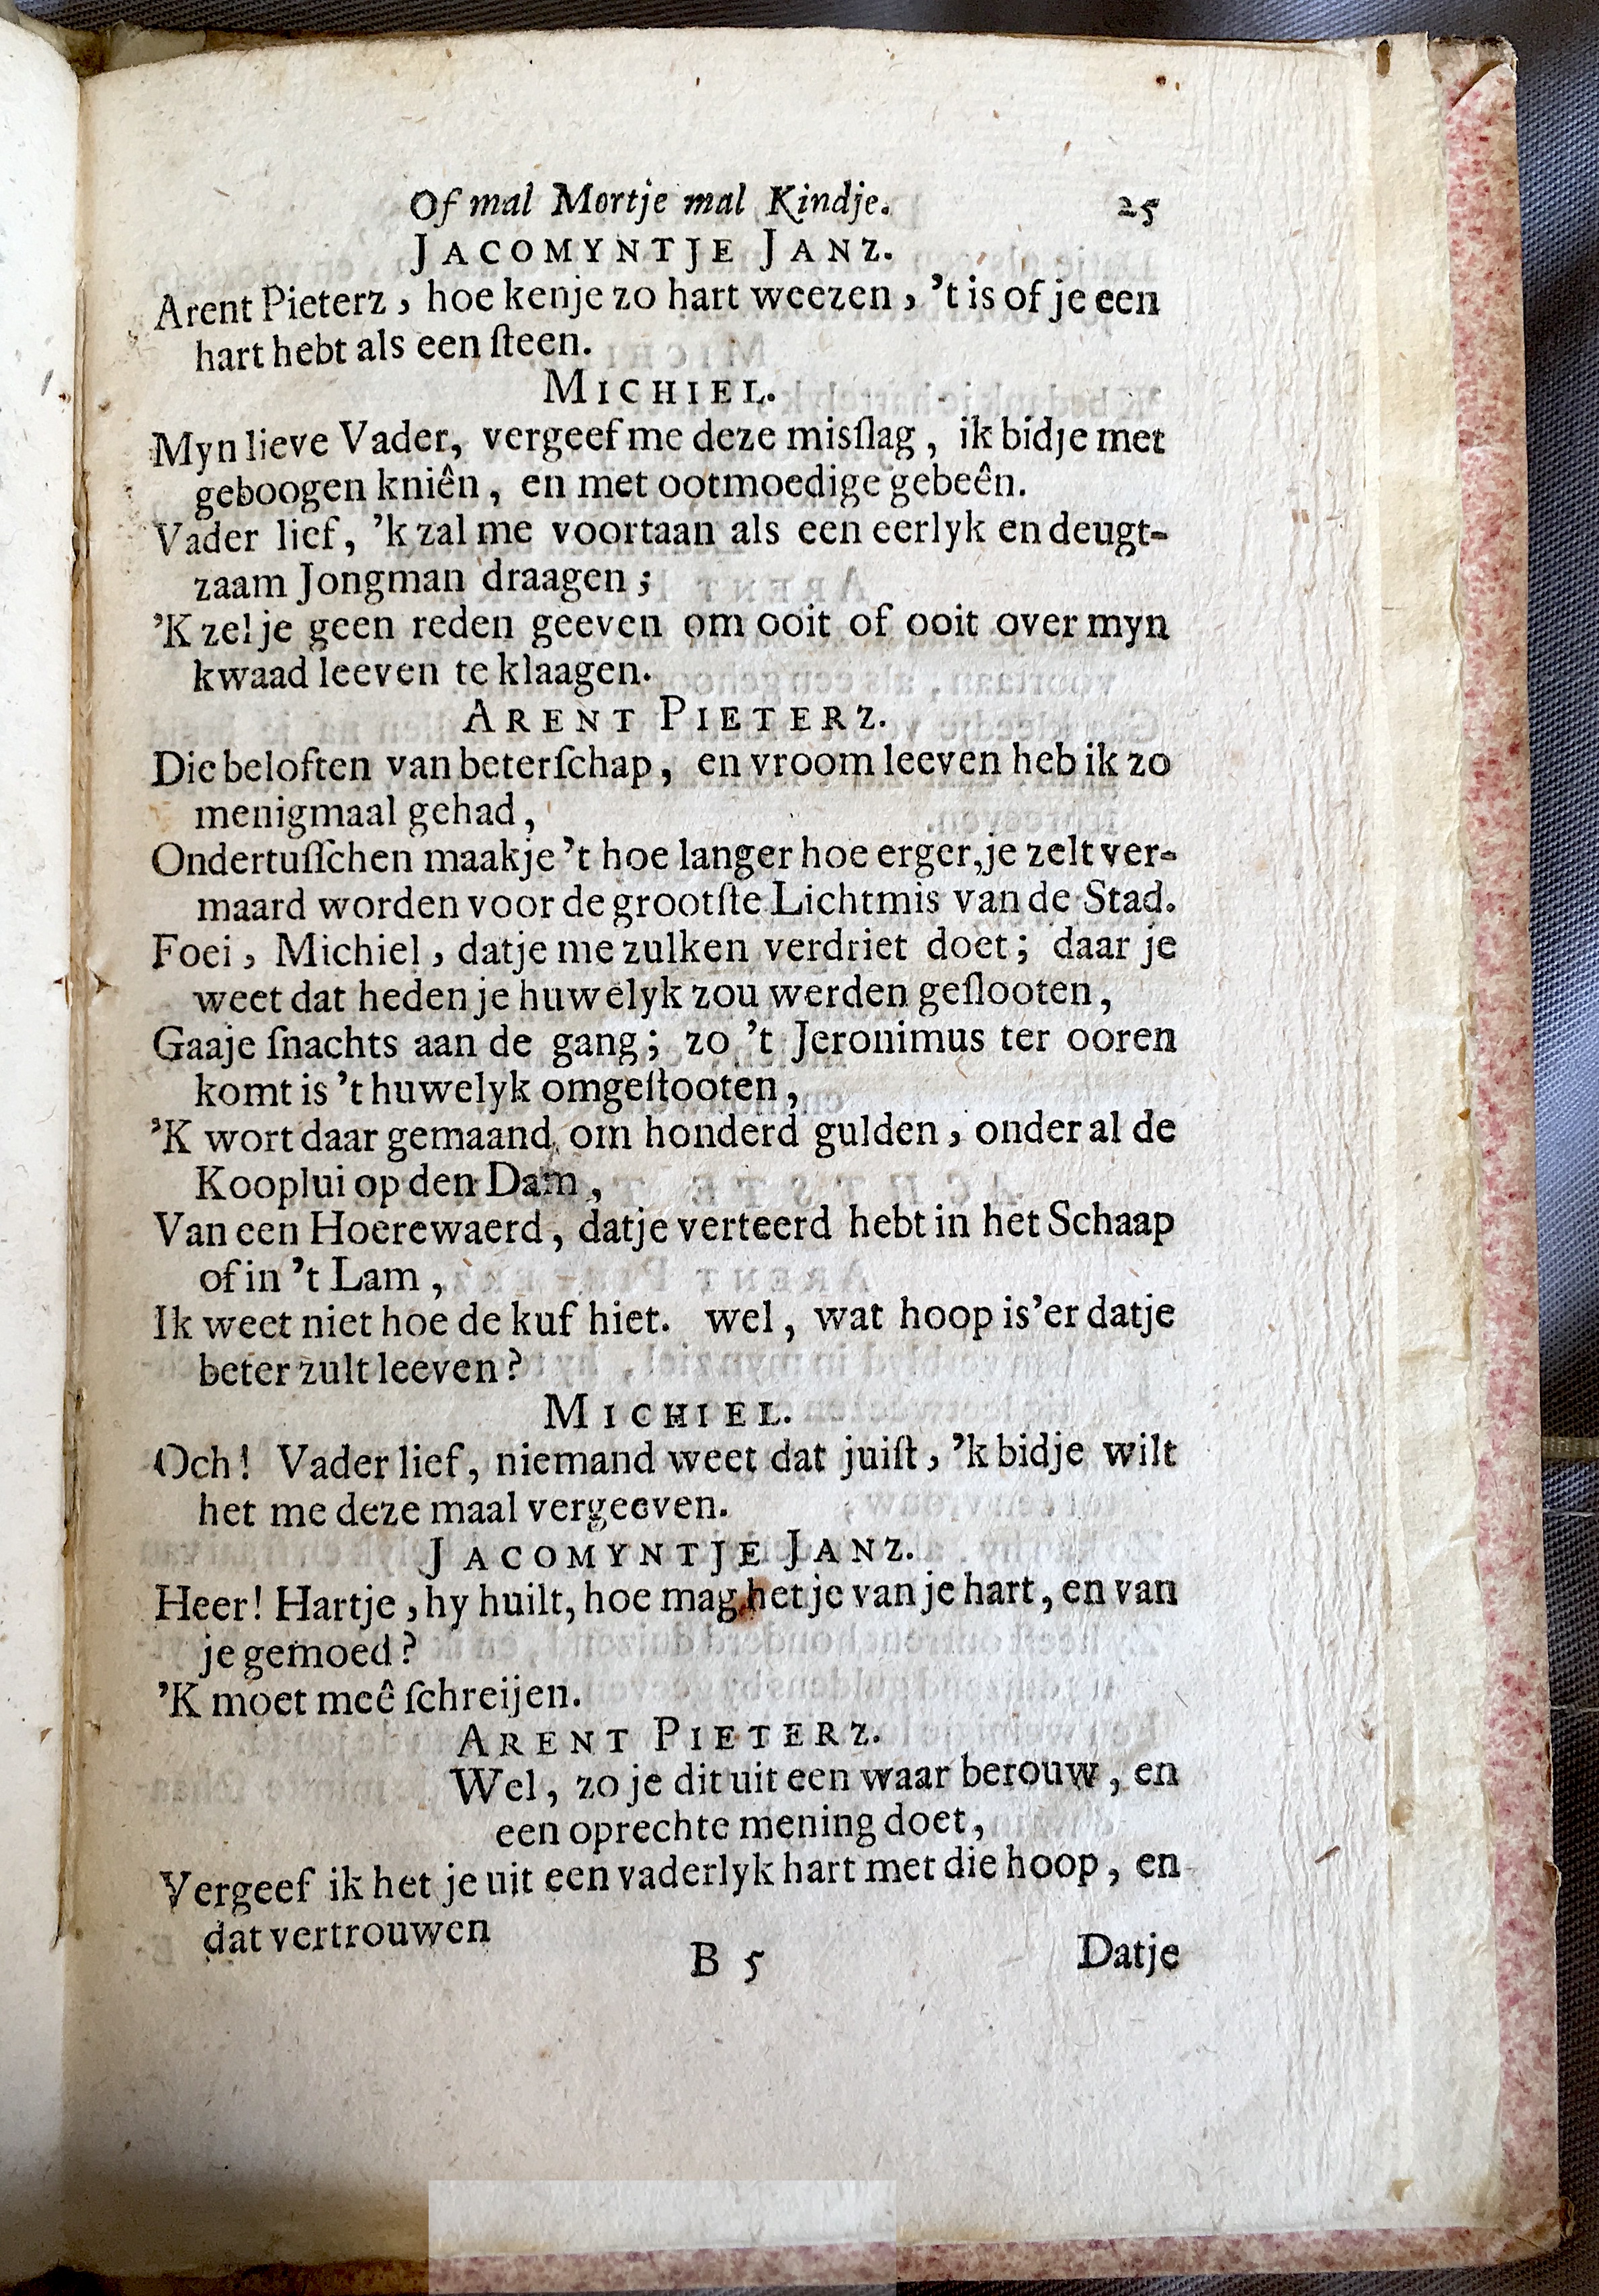 Of mal Mortje mal Kindje. 25
JACOMYNTJE JANZ.
Arent Pieterz, hoe kenje zo hart weezen, 't is of je een
hart hebt als een ſteen.
MICHIEL.
Myn lieve Vader, vergeef me deze misſlag, ik bidje met
geboogen kniên, en met ootmoedige gebeên.
Vader lief, 'k zal me voortaan als een eerlyk en deugt-
zaam Jongman draagen;
'K zel je geen reden geeven om ooit of ooit over myn
kwaad leeven te klaagen.
ARENT PIETERZ.
Die beloften van beterſchap, en vroom leeven heb ik zo
menigmaal gehad,
Ondertuſſchen maakje 't hoe langer hoe erger, je zelt ver-
maard worden voor de grootſte Lichtmis van de Stad.
Foei, Michiel, datje me zulken verdriet doet; daar je
weet dat heden je huwelyk zou werden geſlooten,
Gaaje ſnachts aan de gang; zo 't Jeronimus ter ooren
komt is 't huwelyk omgeſtooten,
'K wort daar gemaand om honderd gulden, onder al de
Kooplui op den Dam,
Van een Hoerewaerd, datje verteerd hebt in het Schaap
of in 't Lam,
Ik weet niet hoe de kuf hiet. wel, wat hoop is 'er datje
beter zult leeven?
MICHIEL.
Och! Vader lief, niemand weet dat juiſt, 'k bidje wilt
het me deze maal vergeeven.
JACOMYNTJE JANZ.
Heer! Hartje, hy huilt, hoe mag het je van je hart, en van
je gemoed?
'K moet meê ſchreijen.
ARENT PIETERZ.
Wel, zo je dit uit een waar berouw, en
een oprechte mening doet,
Vergeef ik het je uit een vaderlyk hart met die hoop, en
dat vertrouwen
B 5 Datje